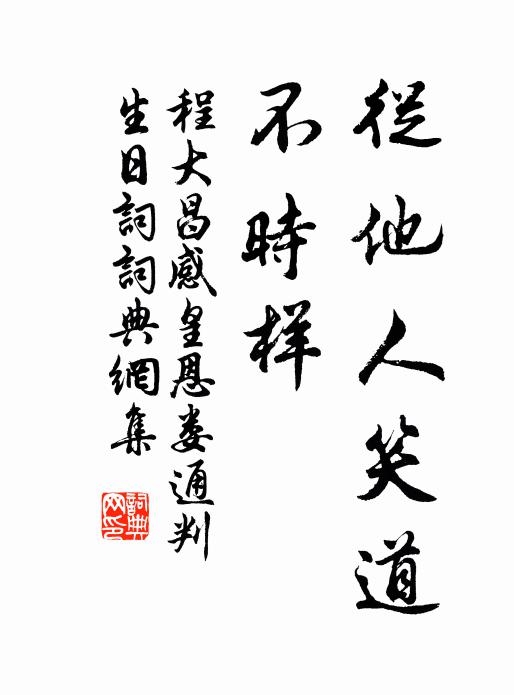 從他人笑道
不時样
程大昌感皇恩娄通判
生日詞詞典網集
詞典
网印